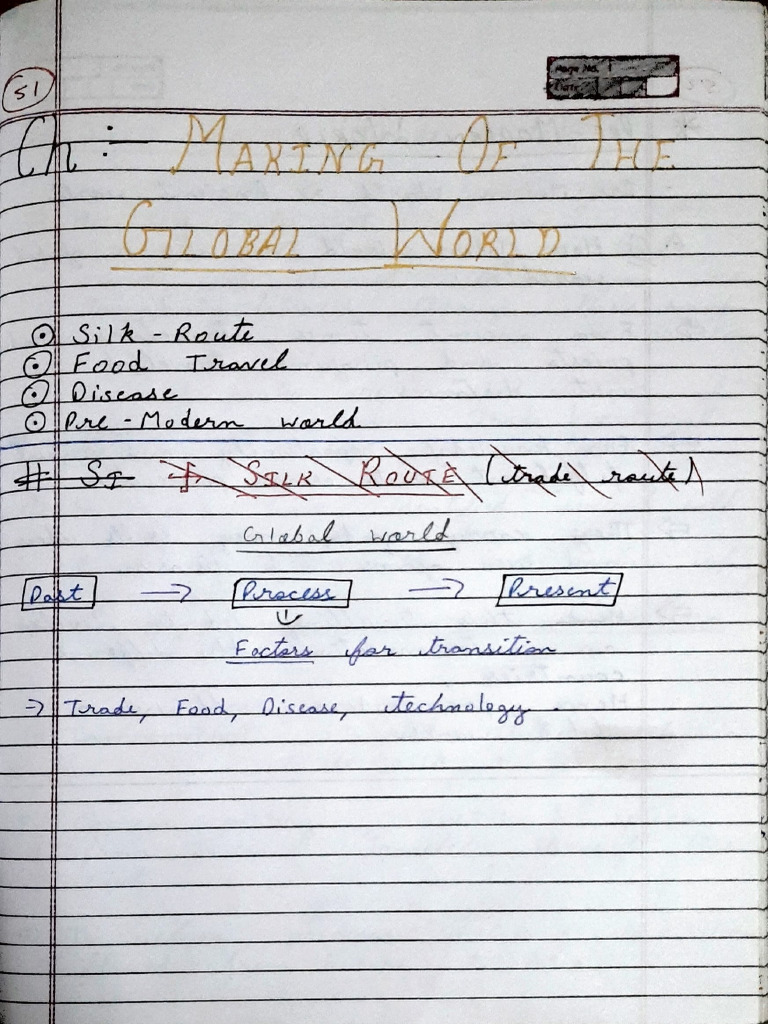 51
Page No.
Date
Ch :- MAKING OF THE
GLOBAL WORLD
Silk - Route
Food Travel
Disease
Pre - Modern world
# SI SILK ROUTE (trade route)
Global world
Past → Process → Present
↓
Factors for transition
⇒ Trade, Food, Disease, technology.